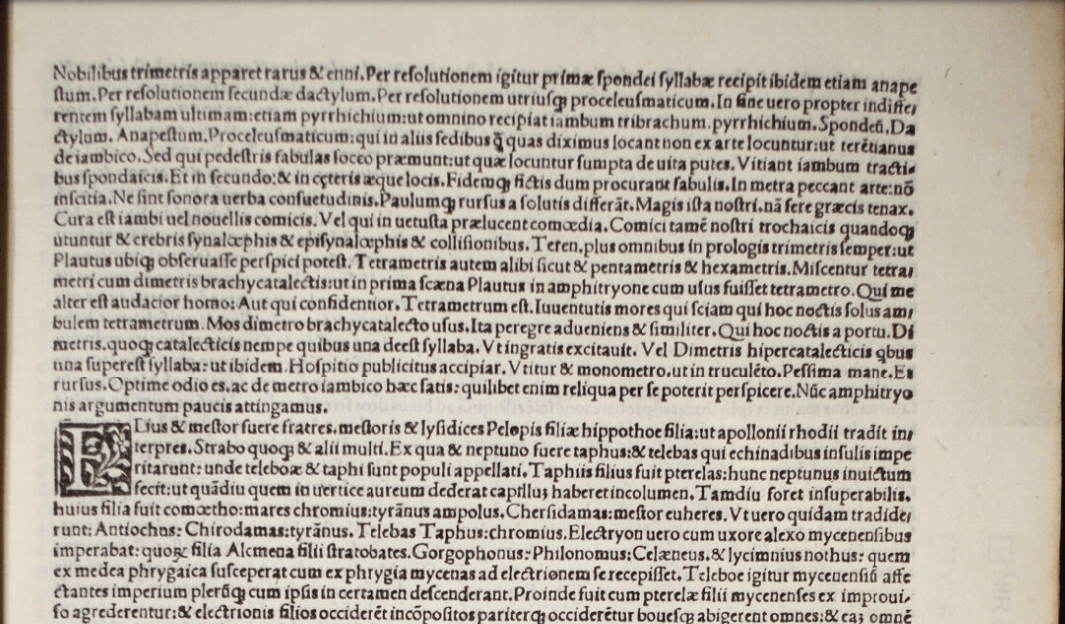 Nobilibus trimetris apparet rarus & enni. Per resolutionem igitur primæ spondei syllabæ recipit ibidem etiam anape
stum. Per resolutionem secundæ dactylum. Per resolutionem utriusqꝫ proceleusmaticum. In fine uero propter indiffe,
rentem syllabam ultimam: etiam pyrrhichium: ut omnino recipiat iambum tribrachum. pyrrhichium. Spondeũ. Da
ctylum. Anapestum. Proceleusmaticum: qui in aliis sedibus q̃ quas diximus locant non ex arte locuntur: ut terẽtianus
de iambico. Sed qui pedestris fabulas socco præmunt: ut quæ locuntur sumpta de uita putes. Vitiant iambum tracti-
bus spondaicis. Et in secundo: & in cęteris æque locis. Fidemqꝫ fictis dum procurant fabulis. In metra peccant arte: nõ
inscitia. Ne sint sonora uerba consuetudinis. Paulumqꝫ rursus a solutis differãt. Magis ista nostri. nã fere græcis tenax.
Cura est iambi uel nouellis comicis. Vel qui in uetusta prælucent comœdia. Comici tamẽ nostri trochaicis quandoqꝫ
utuntur & crebris synalœphis & episynalœphis & collisionibus. Teren. plus omnibus in prologis trimetris semper: ut
Plautus ubiqꝫ obseruasse perspici potest. Tetrametris autem alibi sicut & pentametris & hexametris. Miscentur tetra,
metri cum dimetris brachycatalectis: ut in prima scæna Plautus in amphitryone cum usus fuisset tetrametro. Qui me
alter est audacior homo: Aut qui confidentior. Tetrametrum est. Iuuentutis mores qui sciam qui hoc noctis solus am,
bulem tetrametrum. Mos dimetro brachycatalecto usus. Ita peregre adueniens & similiter. Qui hoc noctis a portu. Di
metris. quoqꝫ catalecticis nempe quibus una deest syllaba. Vt ingratis excitauit. Vel Dimetris hipercatalecticis qbus
una superest syllaba: ut ibidem. Hospitio publicitus accipiar. Vtitur & monometro. ut in truculẽto. Pessima mane. Et
rursus. Optime odio es. ac de metro iambico hæc satis: quilibet enim reliqua per se poterit perspicere. Nũc amphitryo
nis argumentum paucis attingamus.
ELius & mestor fuere fratres. mestoris & lysidices Pelopis filiæ hippothoe filia: ut apollonii rhodii tradit in,
terpres. Strabo quoqꝫ & alii multi. Ex qua & neptuno fuere taphus: & telebas qui echinadibus insulis impe
ritarunt: unde teleboæ & taphi sunt populi appellati. Taphiis filius fuit pterelas: hunc neptunus inuictum
fecit: ut quãdiu quem in uertice aureum dederat capilluꝫ haberet incolumen. Tamdiu foret insuperabilis.
huius filia fuit comœtho: mares chromius: tyrãnus ampolus. Chersidamas: mestor euheres. Vt uero quidam tradide,
runt: Antiochus: Chirodamas: tyrãnus. Telebas Taphus: chromius. Electryon uero cum uxore alexo mycenensibus
imperabat: quoꝝ filia Alcmena filii stratobates. Gorgophonus: Philonomus: Celæneus. & lycimnius nothus: quem
ex medea phrygaica susceperat cum ex phrygia mycenas ad electrionem se recepisset. Teleboe igitur mycenensiũ affe
ctantes imperium plerũqꝫ cum ipsis in certamen descenderant. Proinde fuit cum pterelæ filii mycenenses ex improui,
so agrederentur: & electrionis filios occiderẽt incõpositos pariterqꝫ occiderẽtur bouesqꝫ abigerent omnes: & eaꝫ omnẽ